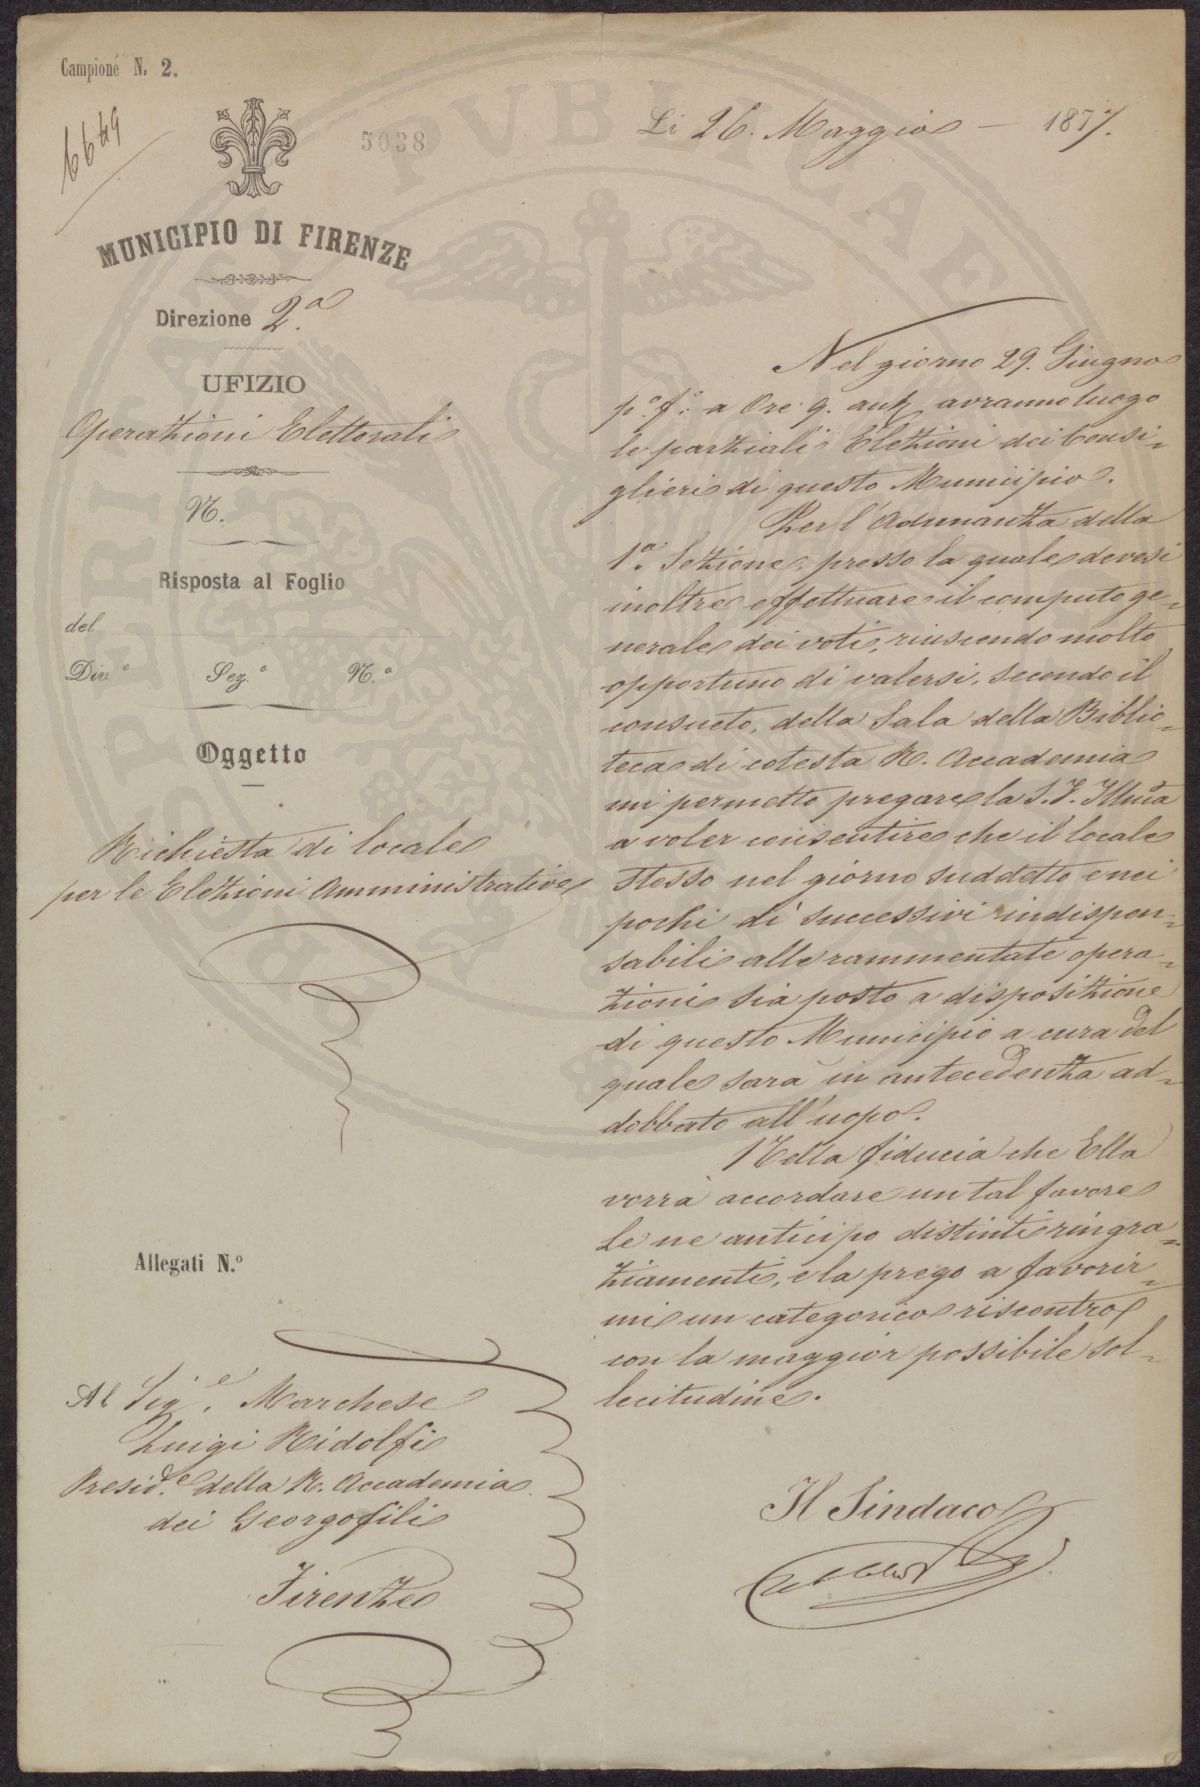 Campione N. 2.
6649
5038
Li 26. Maggio – 1877.
MUNICIPIO DI FIRENZE
Direzione 2.a
UFIZIO
Operazioni Elettorali
N.
Risposta al Foglio
del
Div.e Sez.e N.o
Oggetto
Richiesta di locale
per le Elezioni Amministrative
Allegati N.o
Al Sig.e Marchese
Luigi Ridolfi
Presid.e della R. Accademia
dei Georgofili
Firenze
Nel giorno 29. Giugno
p.o f.o a Ore 9. ant. avranno luogo
le parziali Elezioni dei Consi=
glieri di questo Municipio.
Per l'Adunanza della
1.a Sezione, presso la quale devesi
inoltre effettuare il computo ge=
nerale dei voti, riuscendo molto
opportuno di valersi, secondo il
consueto, della Sala della Biblio=
teca di cotesta R. Accademia
mi permetto pregare la S. V. Illma
a voler consentire che il locale
stesso nel giorno suddetto e nei
pochi dì successivi indispen=
sabili alle rammentate opera=
zioni sia posto a disposizione
di questo Municipio a cura del
quale sarà in antecedenza ad=
dobbato all'uopo.
Nella fiducia che Ella
vorrà accordare un tal favore
Le ne anticipo distinti ringra=
ziamenti, e la prego a favorir=
mi un categorico riscontro
con la maggior possibile sol=
lecitudine.
Il Sindaco